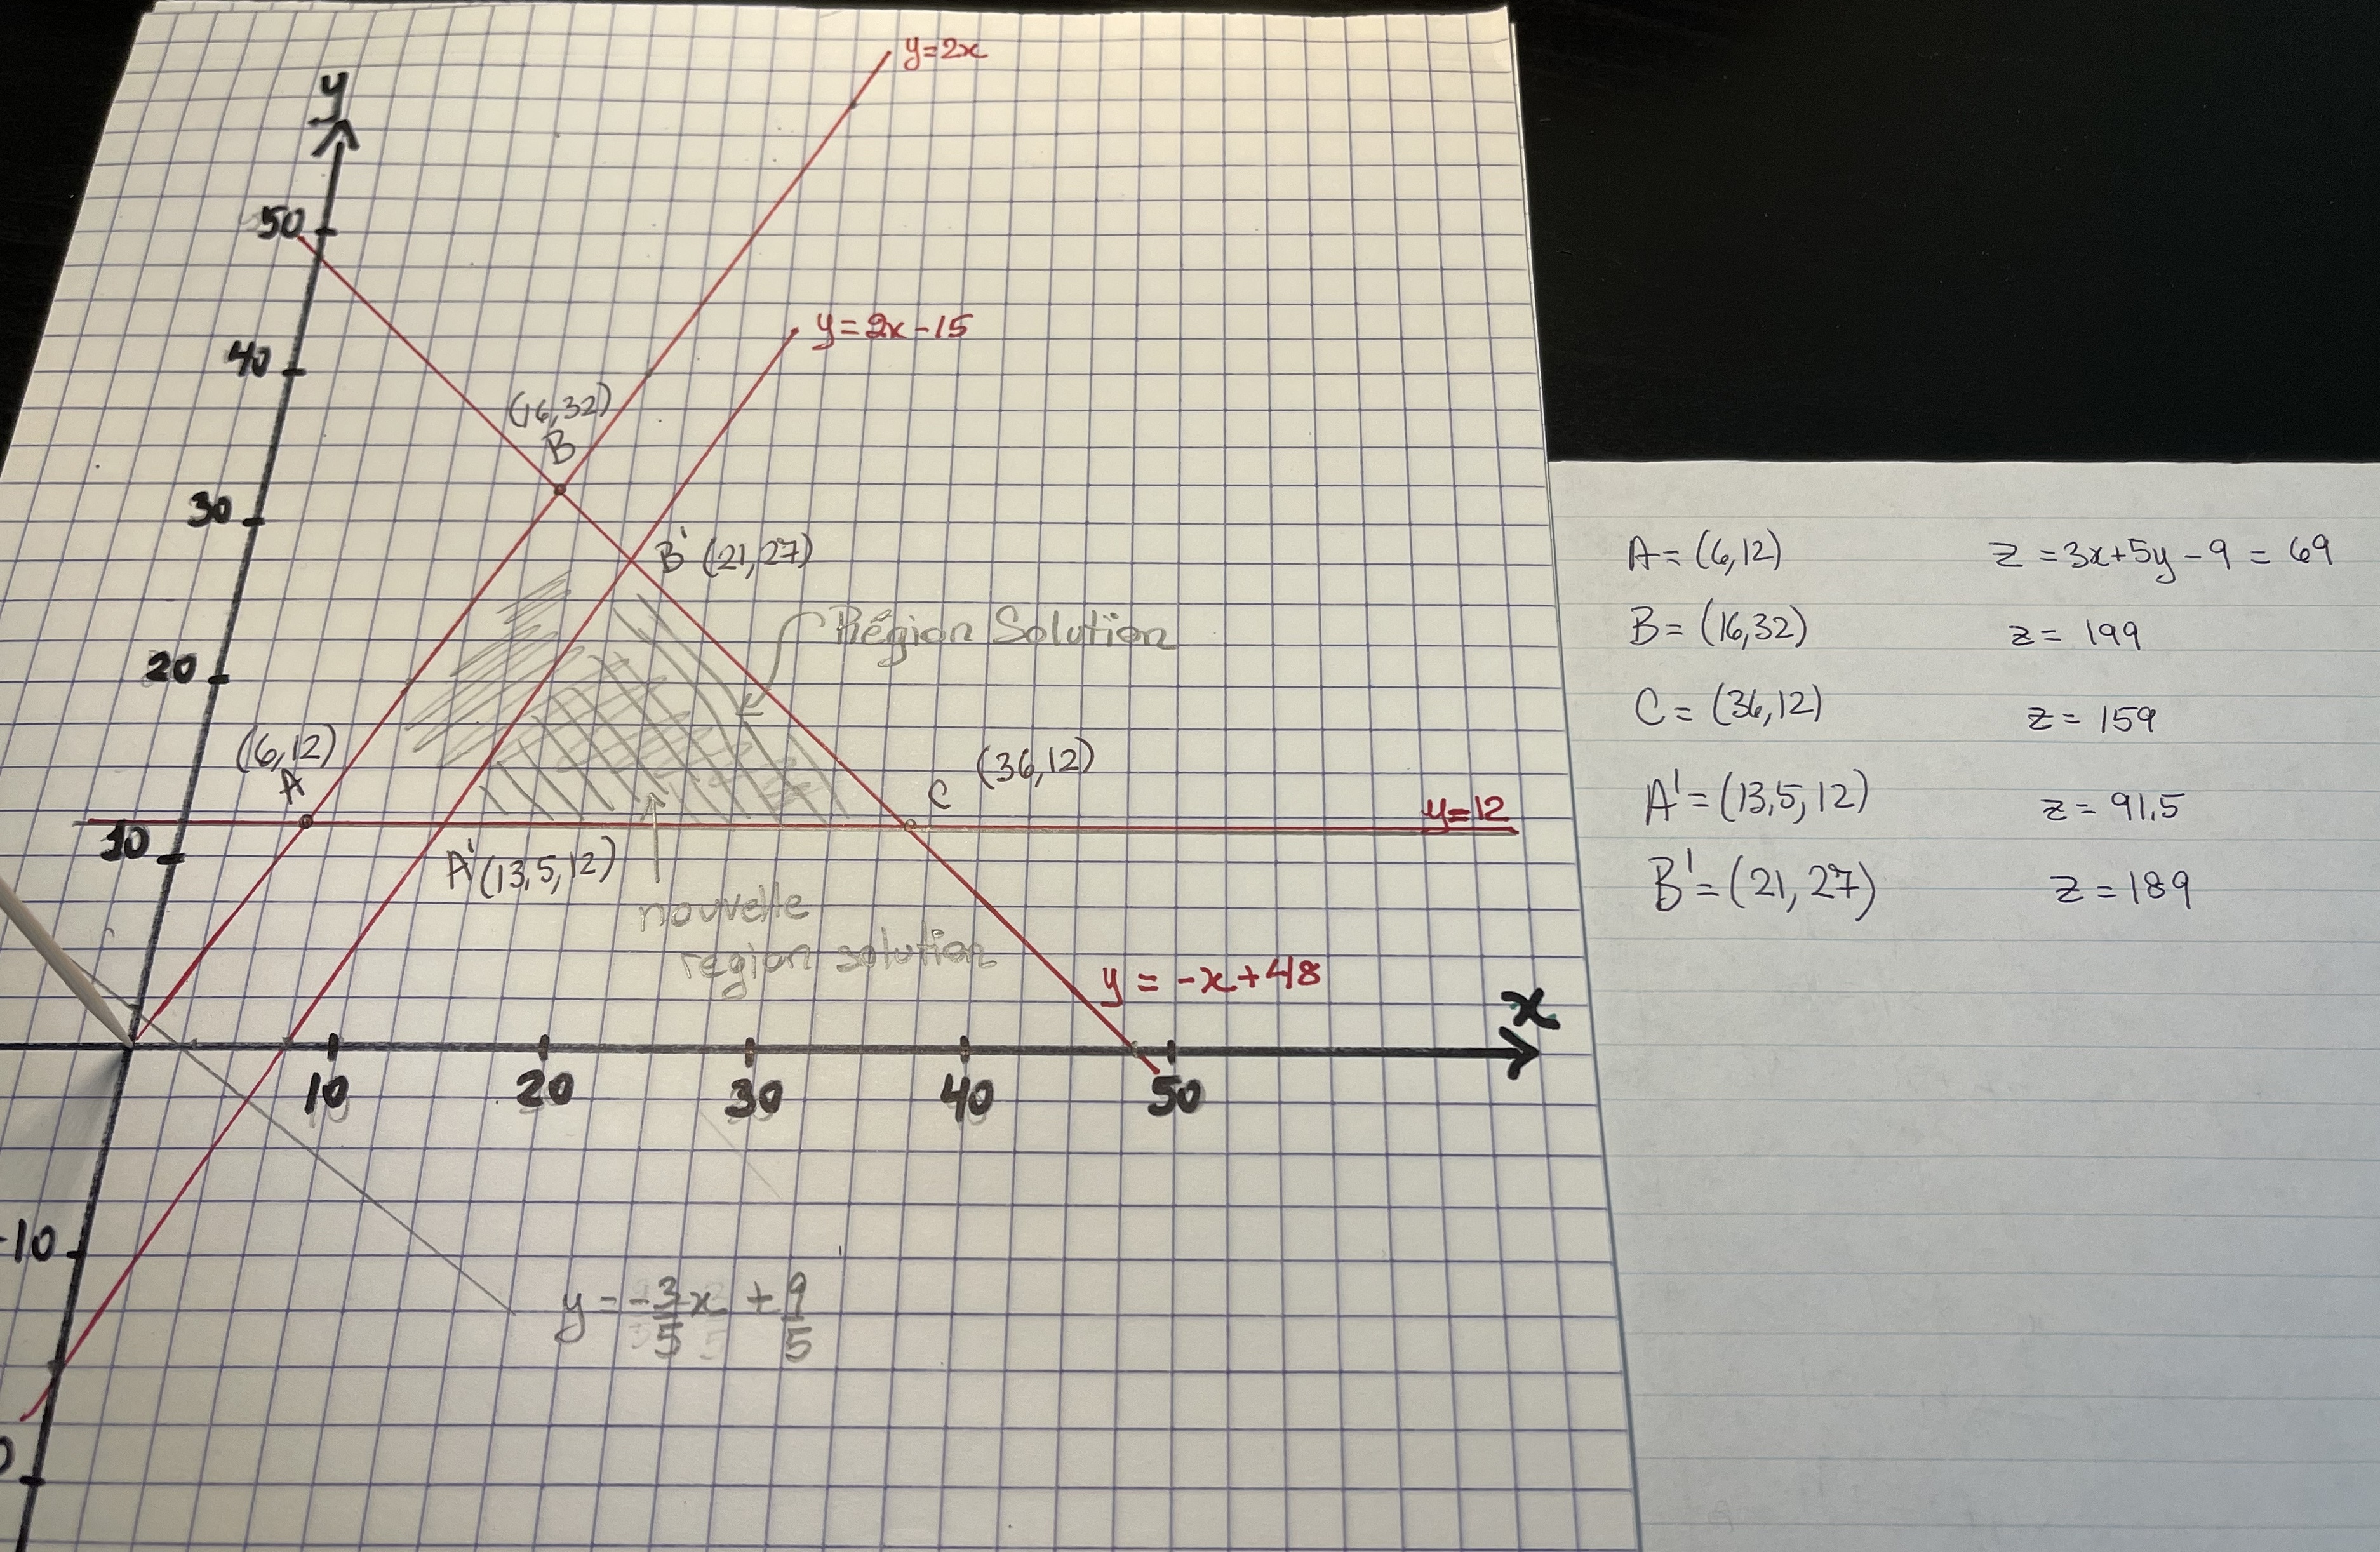 y
y=2x
50
y=2x-15
40
(16,32)
B
30
B' (21,27)
Région Solution
20
(6,12)
A
C (36,12)
y=12
10
A' (13,5, 12)
nouvelle
région solution
y = -x+48
x
10 20 30 40 50
-10
y = -3/5 x + 9/5
0
A = (6,12) z = 3x+5y-9 = 69
B = (16,32) z = 199
C = (36,12) z = 159
A' = (13,5, 12) z = 91,5
B' = (21, 27) z = 189